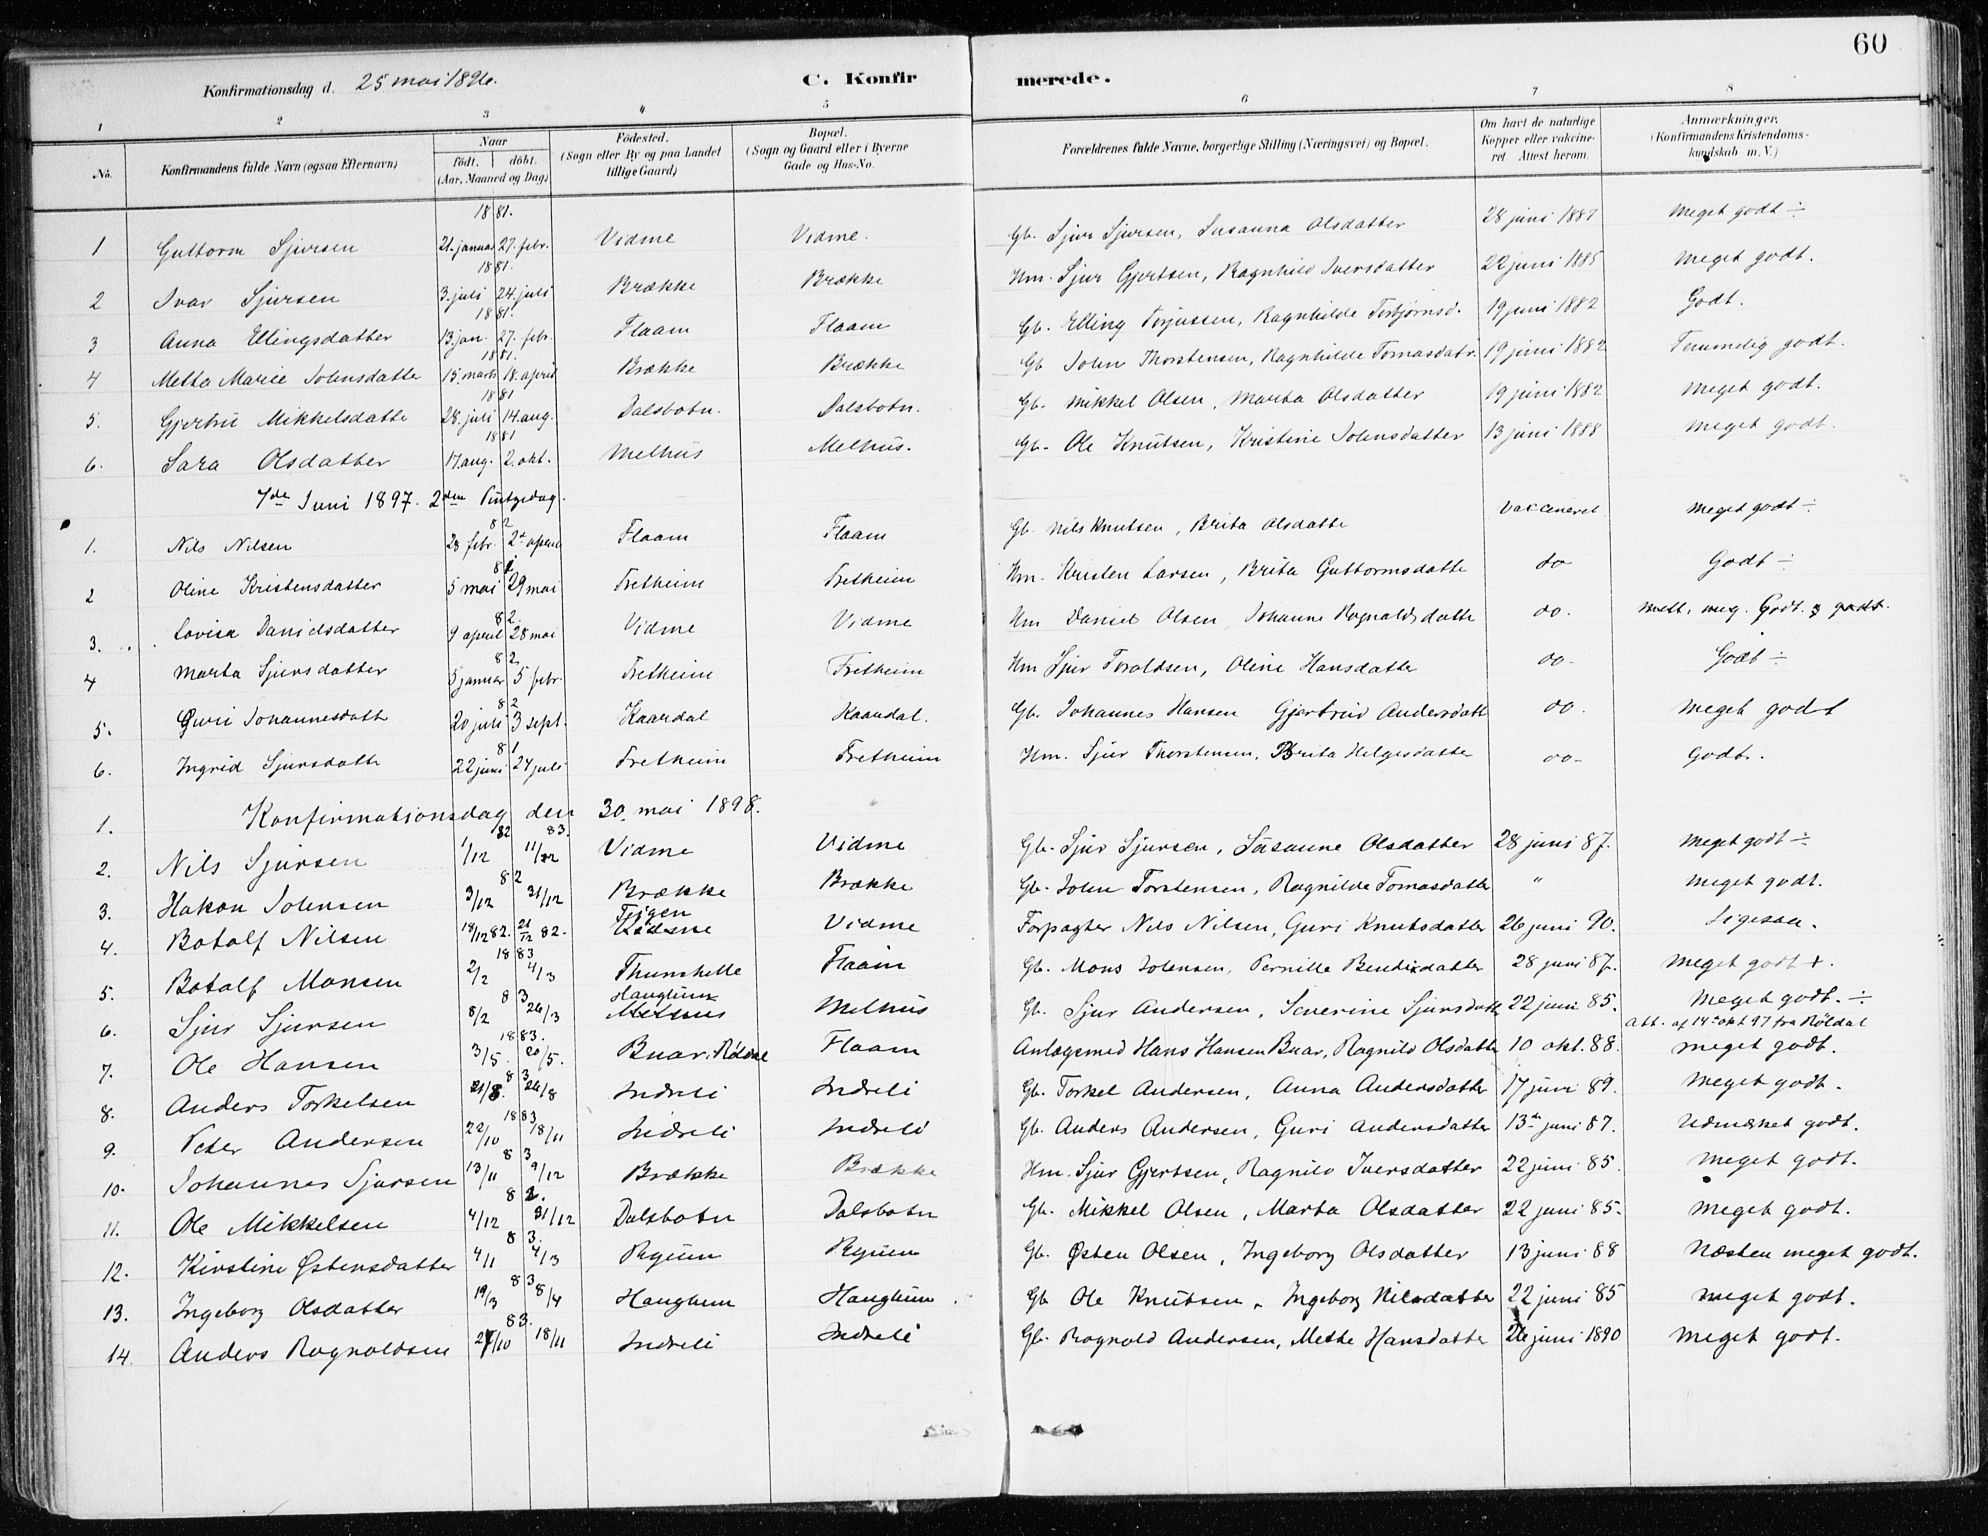 60
Konfirmationsdag d. 25 mai 1896. C. Konfirmerede.
1 2 3 4 5 6 7 8
No. Konfirmandens fulde Navn (ogsaa Efternavn) Naar födt. döbt. (Aar, Maaned og Dag) Födested. (Sogn eller By og paa Landet tillige Gaard) Bopæl. (Sogn og Gaard eller i Byerne Gade og Hus-No. Forældrenes fulde Navne, borgerlige Stilling (Næringsvei) og Bopæl. Om havt de naturlige Kopper eller vakcineret. Attest herom. Anmærkninger. (Konfirmandens Kristendomskundskab m. V.)
1881.
1 Guttorm Sjursen 21. januar 27. febr. Vidme Vidme. Gb. Sjur Sjursen, Susanna Olsdatter 28 juni 1887 Meget godt ÷
1881.
2 Ivar Sjursen 3. juli 24. juli Brække Brække Hm. Sjur Gjertsen, Ragnhild Iversdatter 22 juni 1885 Meget godt.
1881.
3 Anna Ellingsdatter 13. jan. 27. febr. Flaam Flaam Gb. Elling Torjussen, Ragnhilde Torbjørnsd. 19 juni 1882 Godt.
1881.
4 Metta Marie Johnsdatte 15. marts 18. april Brække Brække Gb John Thorstensen, Ragnhilde Tomasdatr. 19 juni 1882 Temmelig godt.
1881
5. Gjertrü Mikkelsdatte 28. juli 14. aug. Dalsbotn. Dalsbotn. Gb. Mikkel Olsen, Marta Olsdatter 19 juni 1882 Meget godt.
1881
6. Sara Olsdatter 17. aug. 2. okt. Melhus Melhus. Gb. Ole Knutsen, Kristine Johnsdatter 13 juni 1888 Meget godt.
7de Juni 1897. 2den Pintsedag.
82
1. Nils Nilsen 23 febr. 2 april Flaam Flaam Gb. Nils Knutsen, Brita Olsdatte vakcineret Meget godt ÷
81
2 Oline Kristensdatter 5 mai 29 mai Fretheim Fretheim Hm. Kristen Larsen, Brita Guttormsdatte do Godt ÷
82.
3. Lovisa Danielsdatter 9 april 28 mai Vidme Vidme Hm Daniel Olsen, Johanne Ragnaldsdatte do. mell. meg. Godt. & godt.
82
4 Marta Sjursdatter 5 januar 5 febr. Fretheim Fretheim Hm Sjur Toroldsen, Oline Hansdatte do. Godt ÷
82
5. Guri Johannesdatt 20 juli 3 sept. Kaardal Kaardal. Gb. Johannes Hansen Gjertrud Andersdatt do. Meget godt
81
6. Ingrid Sjursdatte 22 juni 24 juli Fretheim Fretheim Hm. Sjur Thorstensen, Brita Helgesdatter do. Godt.
1. Konfirmationsdag den 30. mai 1898.
82 83.
2. Nils Sjursen 1/12 11/ Vidme Vidme Gb. Sjur Sjursen, Susanne Olsdatter 28 juni 87. Meget godt ÷
82
3. Hakon Johnsen 3/12 31/12 Brække Brække Gb. John Torstensen, Ragnilde Tomasdatter " Meget godt.
4. Botolf Nilsen 18/12 82. 21/12 82. Feigen Vidme Forpagter Nils Nilsen, Guri Knutsdatter 26 juni 90. Ligesaa.
1883
5. Botolf Monsen 2/2 4/3 Thunshelle Flaam Gb. Mons Johnsen, Pernille Bendixdatter 28 juni 87. Meget godt +.
83
6. Sjur Sjursen 8/2 26/3 Haughum Melhus Gb. Sjur Andersen, Severine Sjursdatte 22 juni 85. Meget godt. ÷
1883. Att. af 14de okt 97 fra Røldal
7. Ole Hansen 3/5. 20/5. Buar. Røldal Flaam Anlægsmed Hans Hansen Buar, Ragnild Olsdatte 10 okt. 88. Meget godt.
83
8. Anders Torkelsen 21/8. 26/8 Indreli Indreli Gb. Torkel Andersen, Anna Andersdatter 17 juni 89. Meget godt.
1883
9. Peter Andersen 22/10 18/11 Indreli Indreli Gb. Anders Andersen, Guri Andersdatter 13de juni 87. Udmærket godt.
83
10. Johannes Sjursen 13/11 9/12 Brække Brække Hm. Sjur Gjertsen, Ragnild Iversdatter 22 juni 85. Meget godt.
82.
11. Ole Mikkelsen 4/12 31/12 Dalsbotn Dalsbotn Gb. Mikkel Olsen, Marta Olsdatter 22 juni 85. Meget godt.
83.
12. Kirstine Østensdatter 4/1 4/3 Ryum Ryum Gb. Østen Olsen, Ingeborg Olsdatter 13 juni 88 Næsten meget godt.
83
13. Ingeborg Olsdatter 19/3 8/4 Haughum Haughum Gb Ole Knutsen, Ingeborg Nilsdatter 22 juni 85 Meget godt.
83.
14. Anders Ragnoldsen 27/10 18/11 Indreli Indreli Gb. Ragnold Andersen, Mette Hansdatter 26 juni 1890 Meget godt.